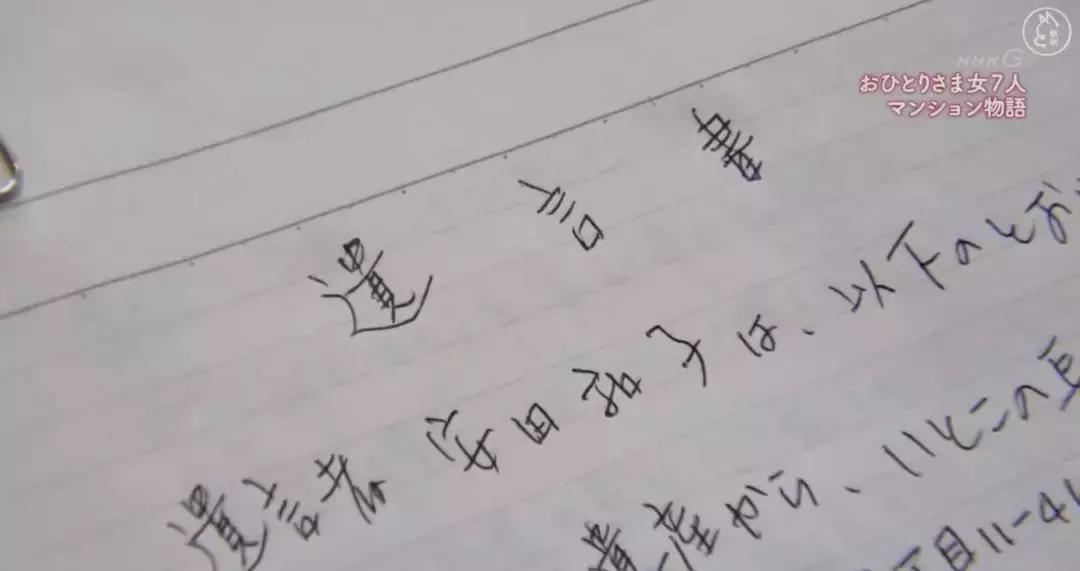 NHK G
おひとりさま女7人
マンション物語
遺言書
遺言者 安田和子は、以下のとお
遺産から、いとこの
丁目11-41